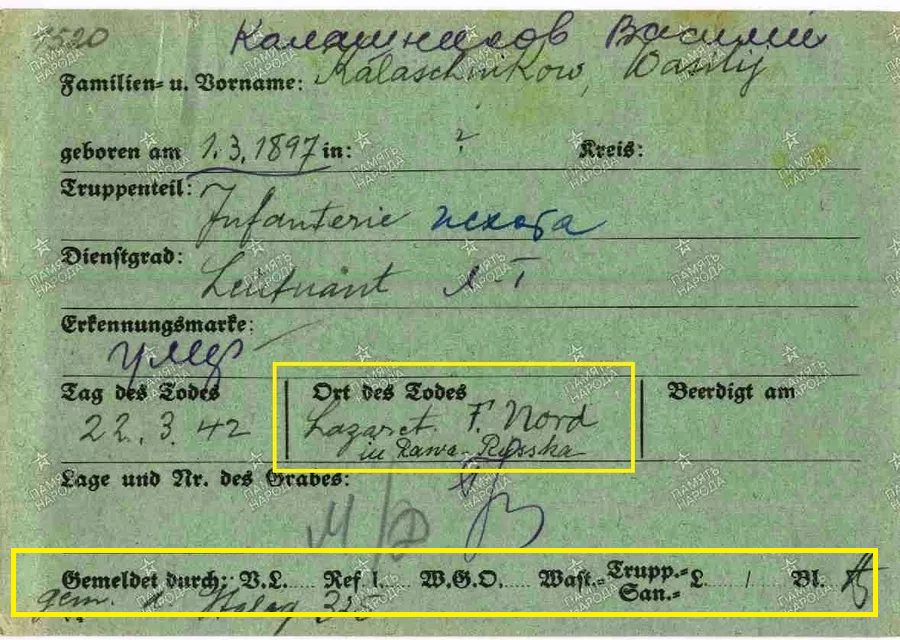 1520
Калашников Василий
Familien= u. Vorname: Kalaschnikow, Wasilij
geboren am 1.3.1897 in: ? Kreis:
Truppenteil: Infanterie пехота
Dienstgrad: Leutnant л-т
Erkennungsmarke:
умер
Tag des Todes Ort des Todes Beerdigt am
22.3.42 Lazaret. F. Nord
in Rawa-Russka
Lage und Nr. des Grabes:
Gemeldet durch: V.L..... Ref l.... W.G.O..... Wast.=Trupp.=L..... / Bl.
San.=
gem. Stalag 325
ПАМЯТЬ НАРОДА